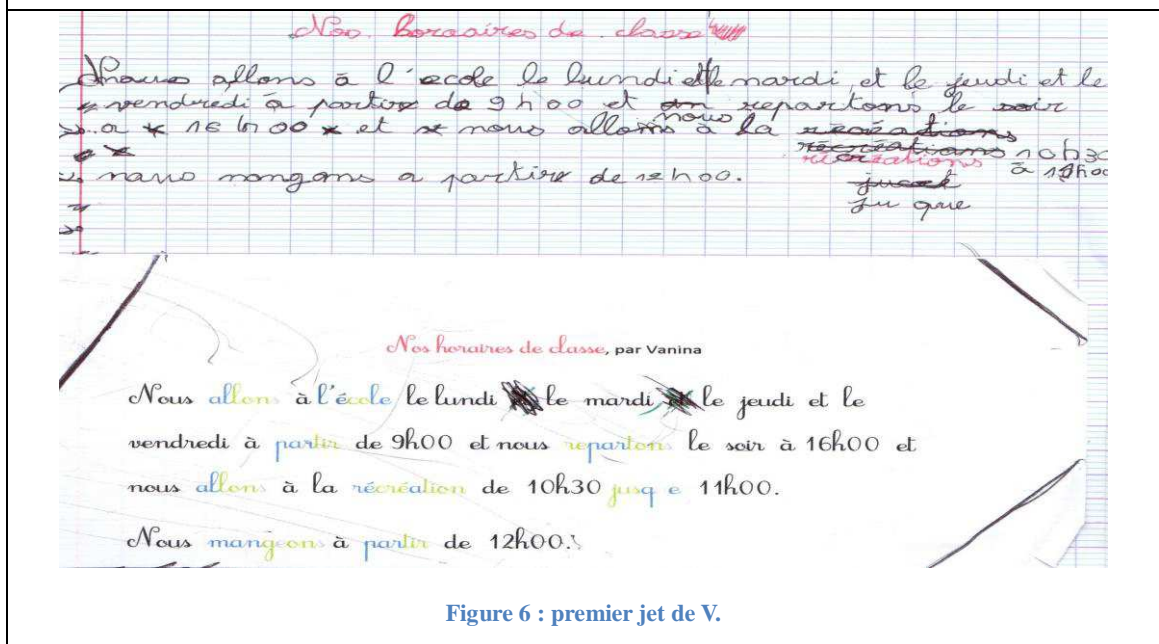 Nos. horaires de classe
Nous allons à l'ecole le lundi et le mardi, et le jeudi et le
vendredi à partire de 9h00 et nous repartons le soir
a 16h00 et nous allons à la récréations 10h30
à 11h00
nano mongons a partire de 12h00.
ju que
Nos horaires de classe, par Vanina
Nous allons à l'école le lundi le mardi le jeudi et le
vendredi à partir de 9h00 et nous repartons le soir à 16h00 et
nous allons à la récréation de 10h30 jusq e 11h00.
Nous mangeons à partir de 12h00.
Figure 6 : premier jet de V.